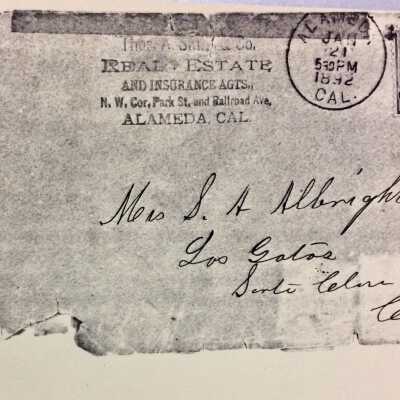 Thos. A. & Co.
REAL ESTATE
AND INSURANCE AGTS.,
N. W. Cor. Park St. and Railroad Ave,
ALAMEDA, CAL.
ALAMED
JAN
21
530PM
1892
CAL.
Mrs S. A Albright
Los Gatos
Santa Clara